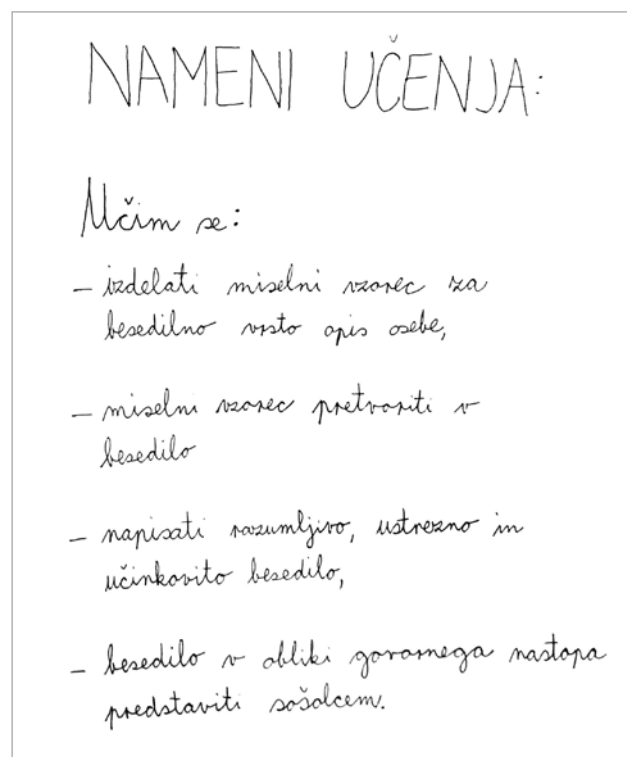 NAMENI UČENJA:
Učim se:
– izdelati miselni vzorec za
besedilno vrsto opis osebe,
– miselni vzorec pretvoriti v
besedilo
– napisati razumljivo, ustrezno in
učinkovito besedilo,
– besedilo v obliki govornega nastopa
predstaviti sošolcem.